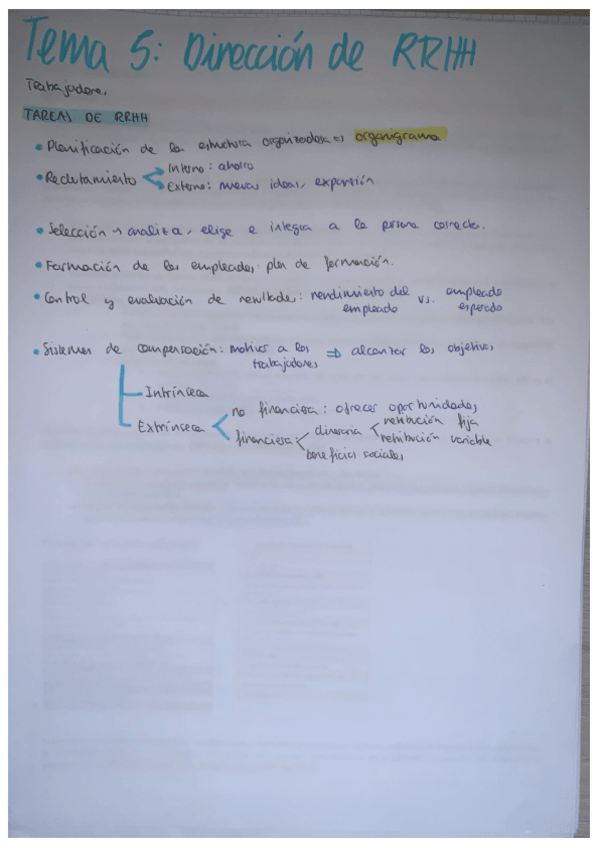 Tema 5: Dirección de RRHH
Trabajadores
TAREAS DE RRHH
• Planificación de la estructura organizadora => organigrama
• Reclutamiento
Interno: ahorro
Externo: nuevas ideas, expansión
• Selección → analiza, elige e integra a la persona correcta.
• Formación de los empleados: plan de formación.
• Control y evaluación de resultados: rendimiento del empleado vs. empleado esperado
• Sistemas de compensación: motivar a los trabajadores => alcanzar los objetivos
Intrínseca
Extrínseca
no financiera: ofrecer oportunidades
financiera
dineraria
retribución fija
retribución variable
beneficios sociales